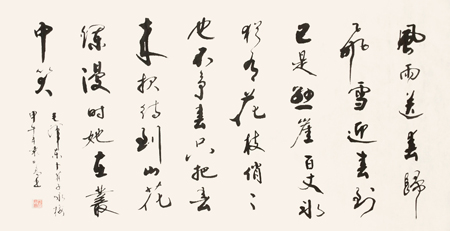 風雨送春歸
飛雪迎春到
已是懸崖百丈冰
猶有花枝俏〻
也不争春只把春
来报待到山花
爛漫時她在叢
中笑
毛澤東卜算子咏梅
甲午